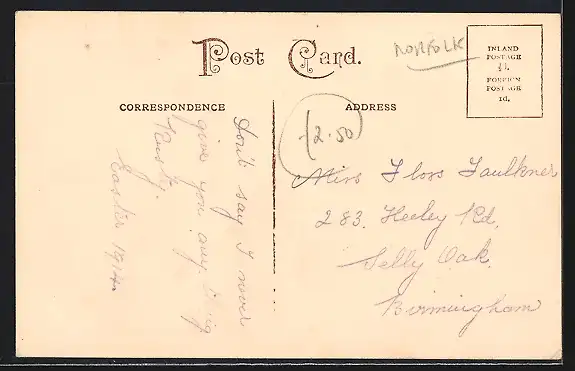 Post Card.
NORFOLK
INLAND
POSTAGE
½d.
FOREIGN
POSTAGE
1d.
CORRESPONDENCE
ADDRESS
(2.50
Don't say I never
give you any thing
Rusty.
Easter 1914.
Miss Floss Faulkner
283. Heeley Rd.
Selly Oak.
Birmingham